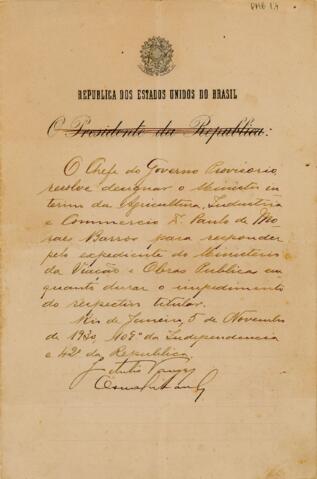 REPUBLICA DOS ESTADOS UNIDOS DO BRASIL
O Presidente da Republica:
O Chefe do Governo Provisorio
resolve designar o Ministro in
terino da Agricultura, Industria
e Commercio Dr. Paulo de Mo
raes Barros para responder
pelo expediente do Ministerio
da Viação e Obras Publicas en
quanto durar o impedimento
do respectivo titular.
Rio de Janeiro, 5 de Novembro
de 1930, 109º da Independencia
e 42º da Republica.
Getulio Vargas